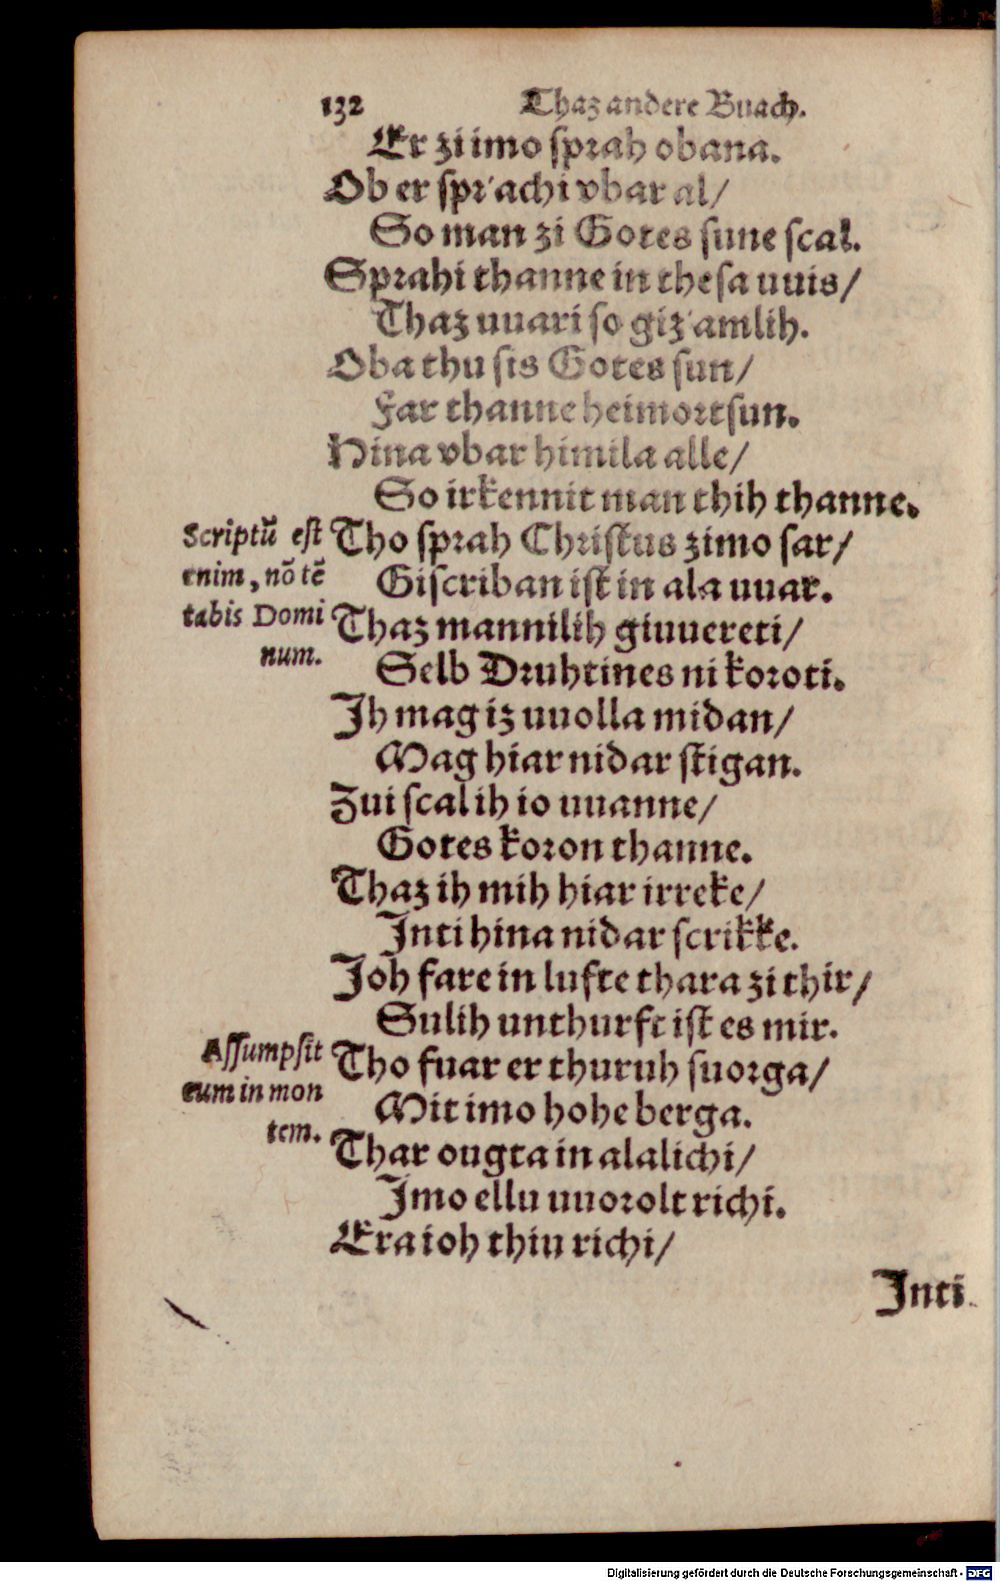 132 Thaz andere Buach.
Er zi imo sprah obana.
Ob er sprachi vbar al/
So man zi Gotes sune scal.
Sprahi thanne in thesa uuis/
Thaz uuari so gizamlih.
Oba thu sis Gotes sun/
Far thanne heimortsun.
Hina vbar himila alle/
So irkennit man thih thanne.
Scriptū est
enim, nō tē
tabis Domi
num.
Tho sprah Christus zimo sar/
Giscriban ist in ala uuar.
Thaz mannilih giuuereti/
Selb Druhtines ni koroti.
Jh mag iz uuolla midan/
Mag hiar nidar stigan.
Zui scal ih io uuanne/
Gotes koron thanne.
Thaz ih mih hiar irreke/
Jnti hina nidar scrikke.
Joh fare in lufte thara zi thir/
Sulih unthurft ist es mir.
Assumpsit
eum in mon
tem.
Tho fuar er thuruh suorga/
Mit imo hohe berga.
Thar ougta in alalichi/
Jmo ellu uuorolt richi.
Era ioh thiu richi/
Jnti
Digitalisierung gefördert durch die Deutsche Forschungsgemeinschaft - DFG